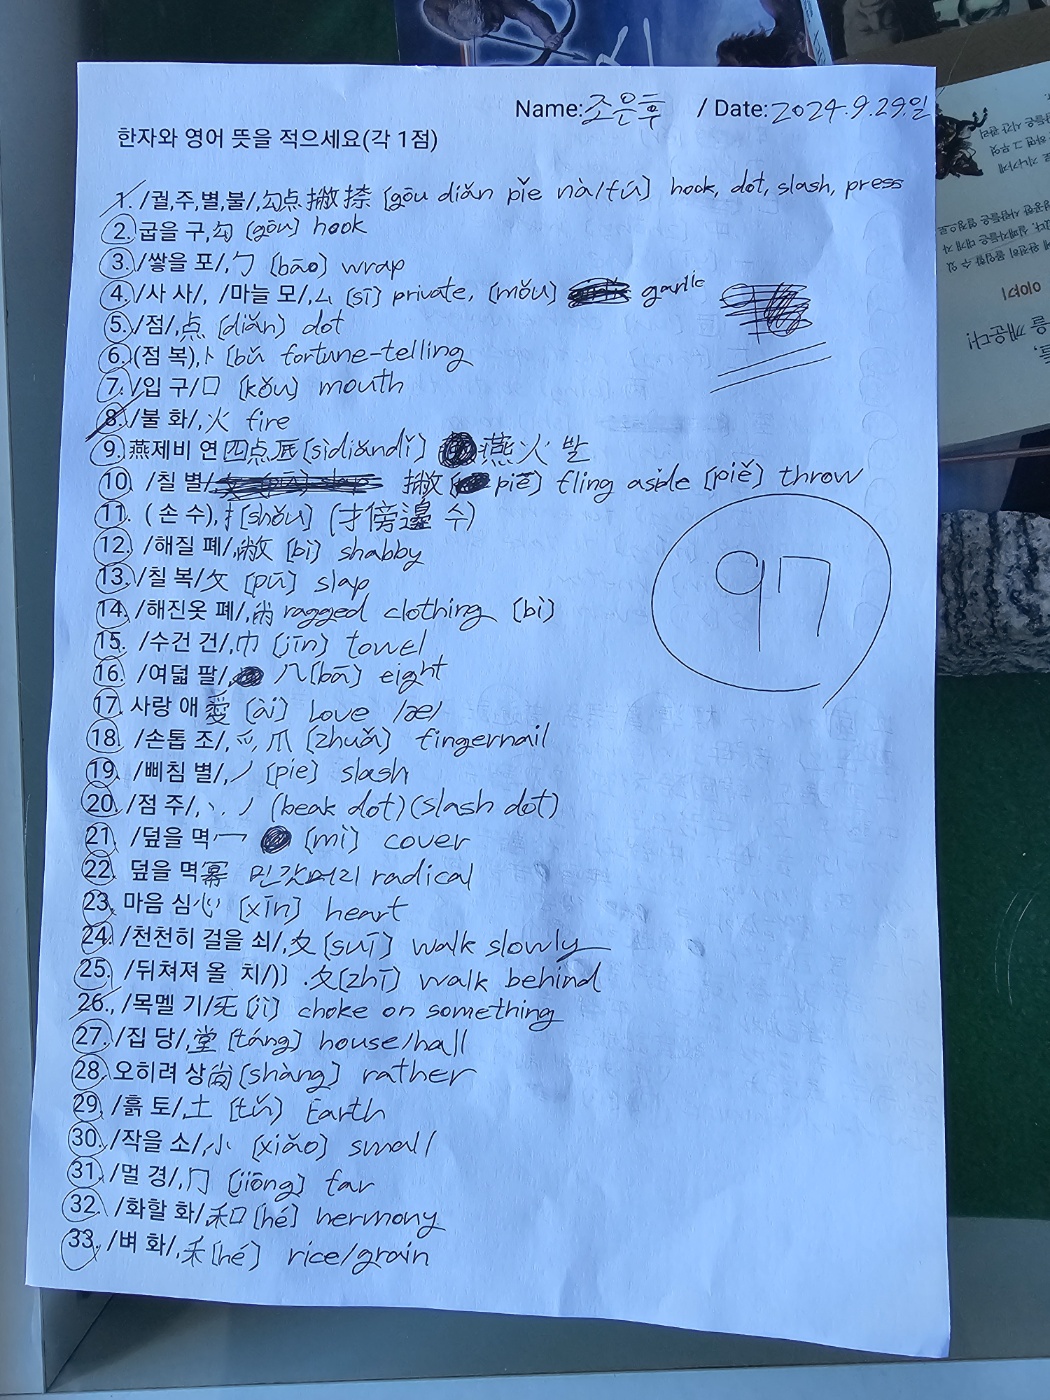 Name:조은후 / Date:2024.9.29.일
한자와 영어 뜻을 적으세요(각 1점)
1. /궐,주,별,불/,勾点撇捺 [gōu diǎn piě nà/fú] hook, dot, slash, press
2. 굽을 구,勾 [gōu] hook
3. /쌓을 포/,勹 [bāo] wrap
4. /사 사/, /마늘 모/,厶 [sī] private, [mǒu] garlic
5. /점/,点 [diǎn] dot
6. (점 복),卜 [bǔ fortune-telling
7. /입 구/口 [kǒu] mouth
8. /불 화/,火 fire
9. 燕제비 연四点底[sìdiǎndǐ] 燕火발
10. /칠 별/, 撇 piē] fling aside [piě] throw
11. (손 수),扌[shǒu] (才傍邊 수)
12. /해질 폐/,敝 [bì] shabby
13. /칠 복/攵 [pū] slap
14. /해진옷 폐/,㡀 ragged clothing [bì]
15. /수건 건/,巾 [jīn] towel
16. /여덟 팔/, 八[bā] eight
17. 사랑 애 愛 [ài] Love /ae/
18. /손톱 조/,爫,爪 [zhuǎ] fingernail
19. /삐침 별/,丿 [pie] slash
20. /점 주/,丶.丿 (beak dot)(slash dot)
21. /덮을 멱冖 [mì] cover
22. 덮을 멱冪 민갓머리 radical
23. 마음 심心 [xīn] heart
24. /천천히 걸을 쇠/,夊 [suī] walk slowly
25. /뒤쳐져 올 치/)] .夂[zhǐ] walk behind
26., /목멜 기/旡 [jì] choke on something
27. /집 당/,堂 [táng] house/hall
28. 오히려 상尙[shàng] rather
29. /흙 토/,土 [tǔ] Earth
30. /작을 소/,小 [xiǎo] small
31. /멀 경/,冂 [jiōng] far
32. /화할 화/,和[hé] hermony
33. /벼 화/,禾[hé] rice/grain
97
이야기